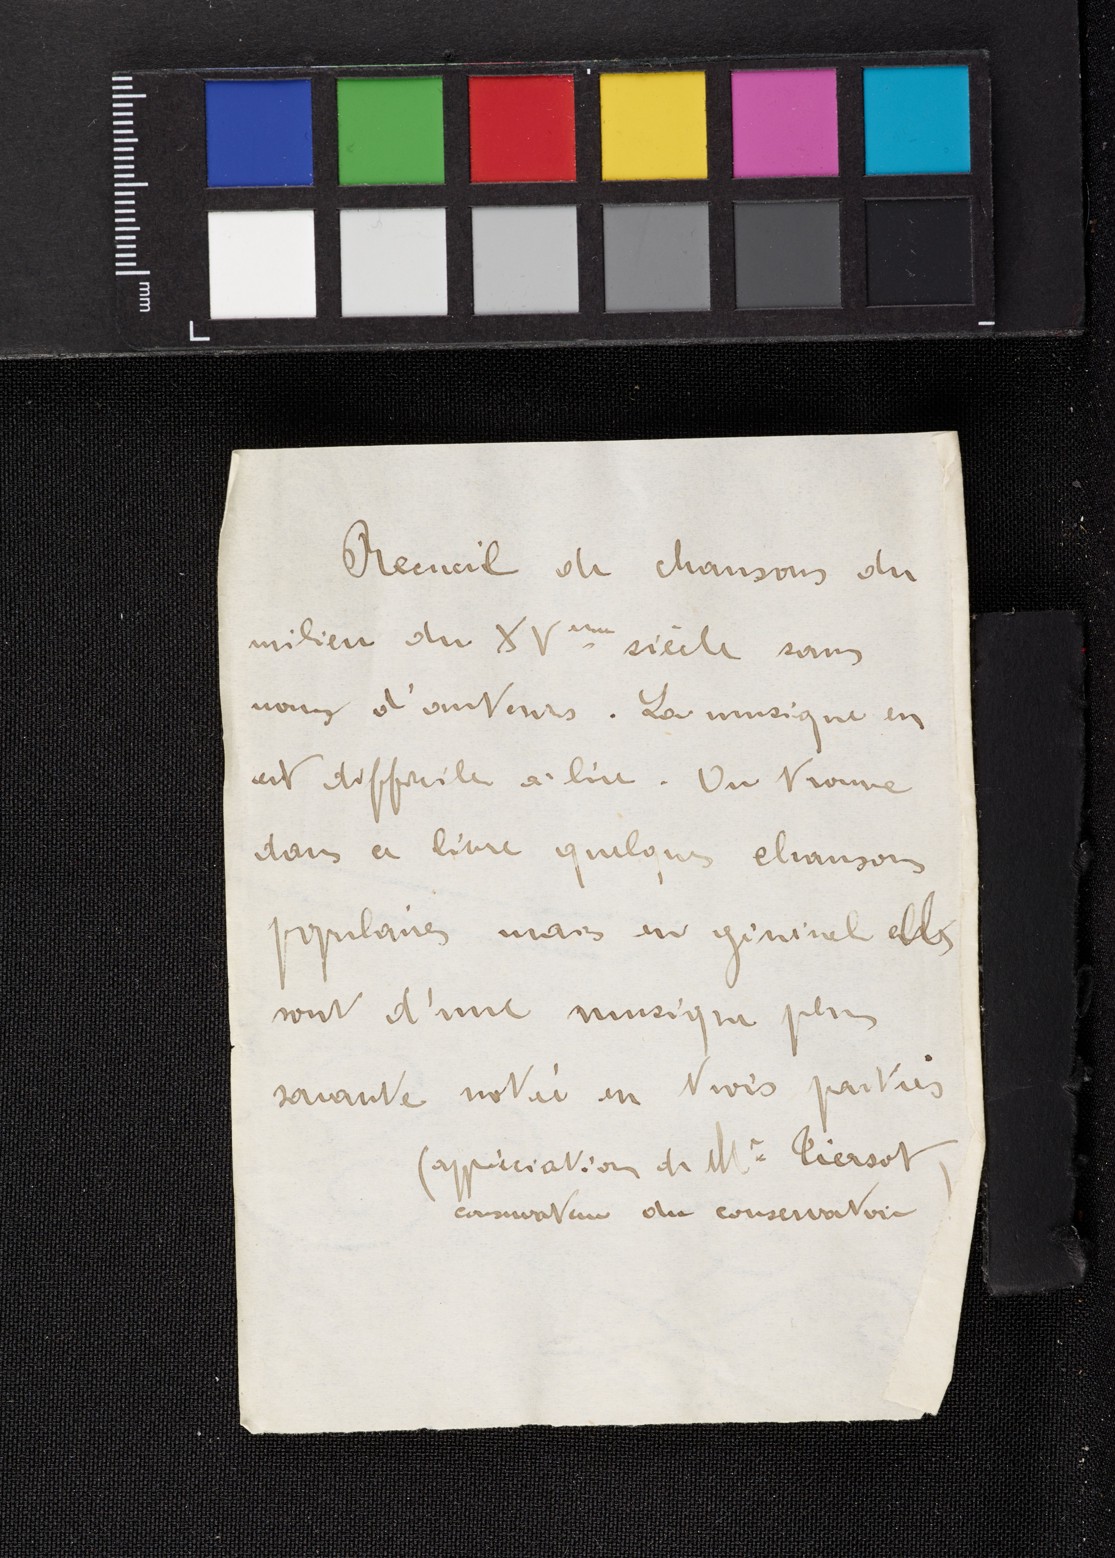 mm
Recueil de chansons du
milieu du XVeme siècle sans
noms d'auteurs. La musique en
est difficile à lire. On trouve
dans ce livre quelques chansons
populaires mais en général elles
sont d'une musique plus
savante notée en trois parties
(appréciation de Mr Tiersot)
conservateur du conservatoire